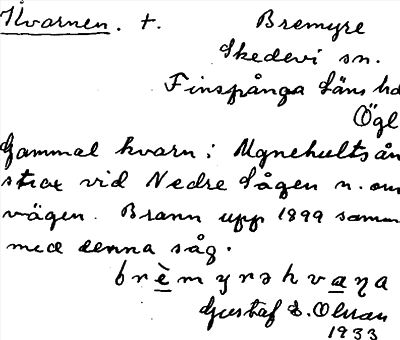 Kvarnen. +.
Bremyre
Skedevi sn.
Finspånga läns hd
Ögl
Gammal kvarn i Ugnehultsån
strax vid Nedre Sågen n. om
vägen. Brann upp 1899 samm
med denna såg.
brèmyrəkvaɳa
Gustaf E. Olsson
1933